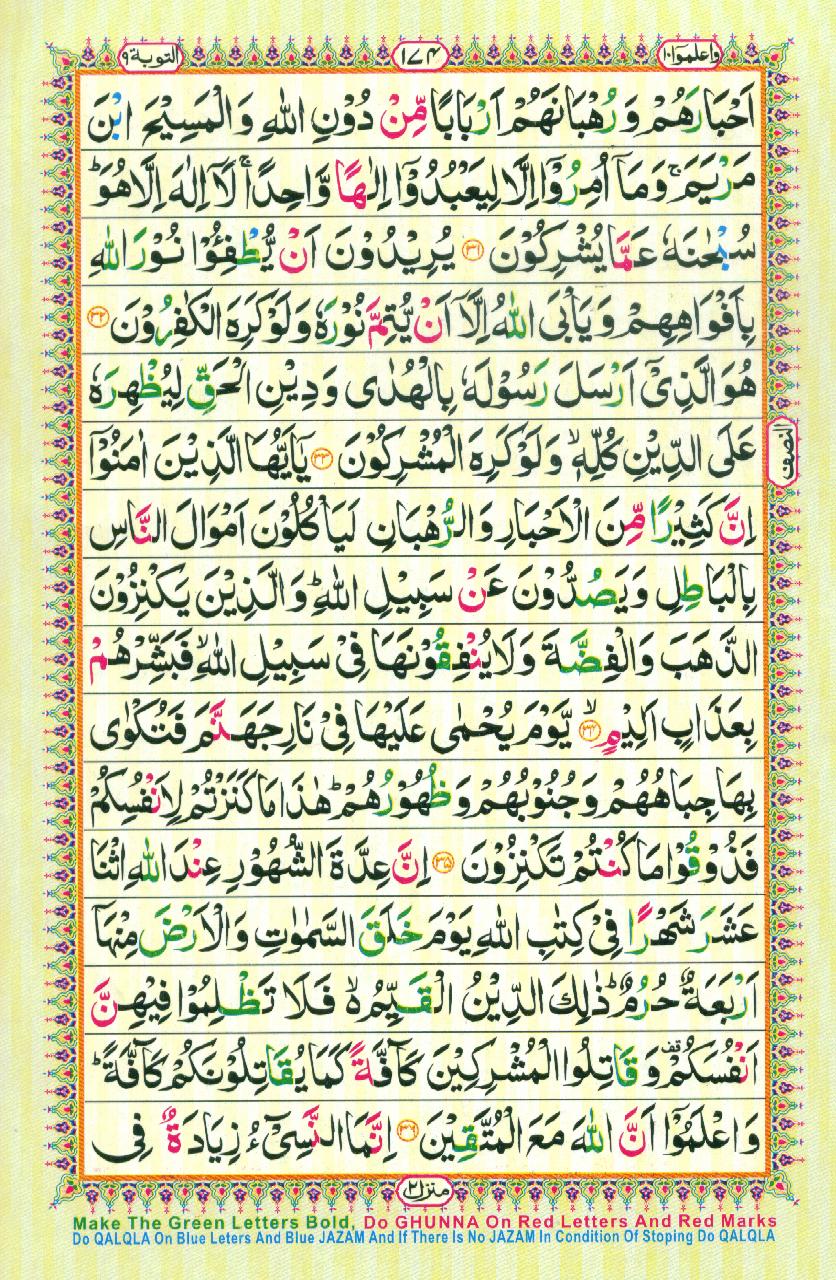 واعلموا ١٠
١٧٤
التوبة ٩
اَحْبَارَهُمْ وَرُهْبَانَهُمْ اَرْبَابًا مِّنْ دُوْنِ اللّٰهِ وَالْمَسِيْحَ ابْنَ
مَرْيَمَ ۚ وَمَاۤ اُمِرُوْۤا اِلَّا لِيَعْبُدُوْۤا اِلٰهًا وَّاحِدًا ۚ لَاۤ اِلٰهَ اِلَّا هُوَ ؕ
سُبْحٰنَهٗ عَمَّا يُشْرِكُوْنَ ۳۱ يُرِيْدُوْنَ اَنْ يُّطْفِـُٔوْا نُوْرَ اللّٰهِ
بِاَفْوَاهِهِمْ وَيَاْبَى اللّٰهُ اِلَّاۤ اَنْ يُّتِمَّ نُوْرَهٗ وَلَوْ كَرِهَ الْكٰفِرُوْنَ ۳۲
هُوَ الَّذِيْۤ اَرْسَلَ رَسُوْلَهٗ بِالْهُدٰى وَدِيْنِ الْحَقِّ لِيُظْهِرَهٗ
عَلَى الدِّيْنِ كُلِّهٖ ۙ وَلَوْ كَرِهَ الْمُشْرِكُوْنَ ۳۳ يٰۤاَيُّهَا الَّذِيْنَ اٰمَنُوْۤا
النصف
اِنَّ كَثِيْرًا مِّنَ الْاَحْبَارِ وَالرُّهْبَانِ لَيَاْكُلُوْنَ اَمْوَالَ النَّاسِ
بِالْبَاطِلِ وَيَصُدُّوْنَ عَنْ سَبِيْلِ اللّٰهِ ؕ وَالَّذِيْنَ يَكْنِزُوْنَ
الذَّهَبَ وَالْفِضَّةَ وَلَا يُنْفِقُوْنَهَا فِيْ سَبِيْلِ اللّٰهِ ۙ فَبَشِّرْهُمْ
بِعَذَابٍ اَلِيْمٍ ۙ ۳۴ يَّوْمَ يُحْمٰى عَلَيْهَا فِيْ نَارِ جَهَنَّمَ فَتُكْوٰى
بِهَا جِبَاهُهُمْ وَجُنُوْبُهُمْ وَظُهُوْرُهُمْ ؕ هٰذَا مَا كَنَزْتُمْ لِاَنْفُسِكُمْ
فَذُوْقُوْا مَا كُنْتُمْ تَكْنِزُوْنَ ۳۵ اِنَّ عِدَّةَ الشُّهُوْرِ عِنْدَ اللّٰهِ اثْنَا
عَشَرَ شَهْرًا فِيْ كِتٰبِ اللّٰهِ يَوْمَ خَلَقَ السَّمٰوٰتِ وَالْاَرْضَ مِنْهَاۤ
اَرْبَعَةٌ حُرُمٌ ؕ ذٰلِكَ الدِّيْنُ الْقَيِّمُ ۙ فَلَا تَظْلِمُوْا فِيْهِنَّ
اَنْفُسَكُمْ قف وَقَاتِلُوا الْمُشْرِكِيْنَ كَآفَّةً كَمَا يُقَاتِلُوْنَكُمْ كَآفَّةً ؕ
وَاعْلَمُوْۤا اَنَّ اللّٰهَ مَعَ الْمُتَّقِيْنَ ۳۶ اِنَّمَا النَّسِيْٓءُ زِيَادَةٌ فِي
منزل ٢
Make The Green Letters Bold, Do GHUNNA On Red Letters And Red Marks
Do QALQLA On Blue Leters And Blue JAZAM And If There Is No JAZAM In Condition Of Stoping Do QALQLA